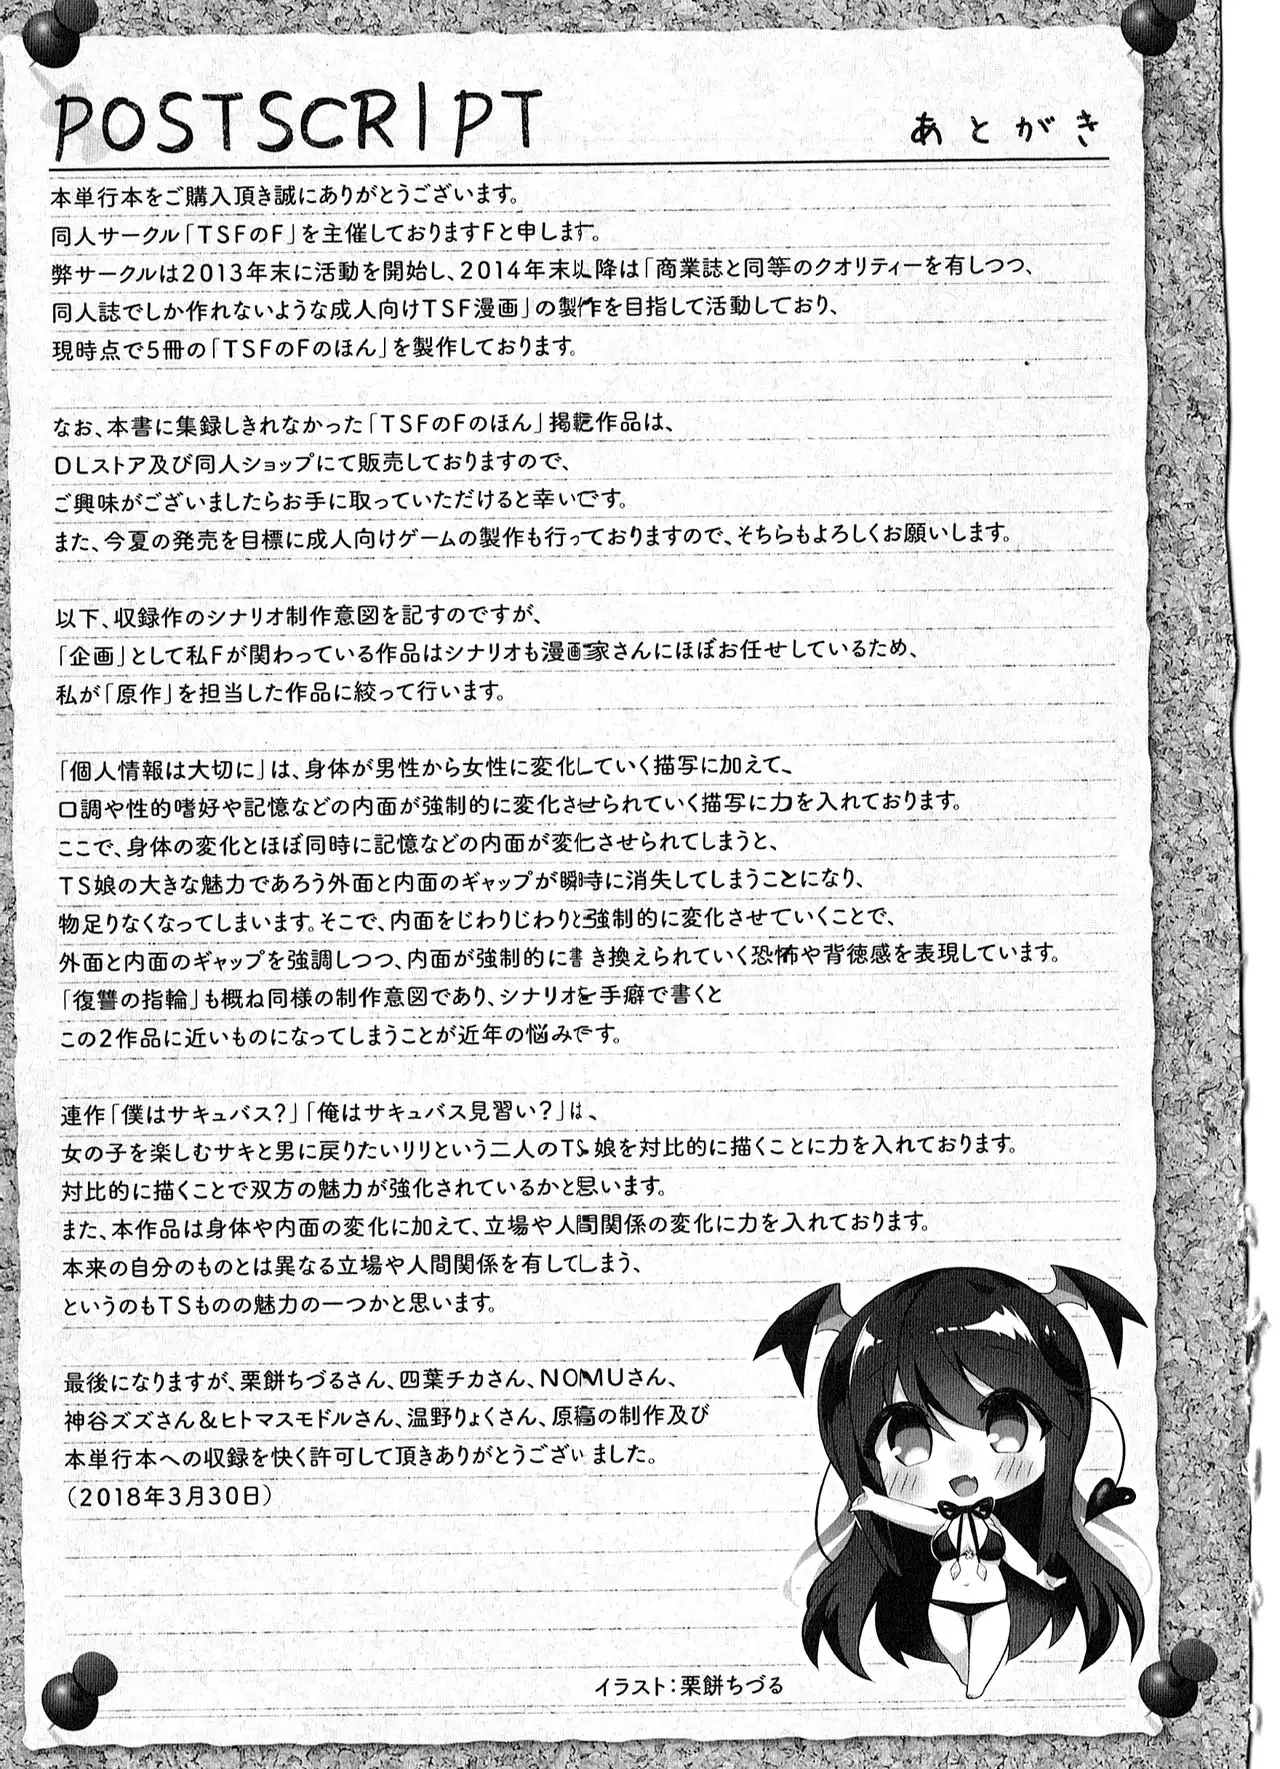 POSTSCRIPT
あとがき
本単行本をご購入頂き誠にありがとうございます。
同人サークル「TSFのF」を主催しておりますFと申します。
弊サークルは2013年末に活動を開始し、2014年末以降は「商業誌と同等のクオリティーを有しつつ、
同人誌でしか作れないような成人向けTSF漫画」の製作を目指して活動しており、
現時点で5冊の「TSFのFのほん」を製作しております。
なお、本書に集録しきれなかった「TSFのFのほん」掲載作品は、
DLストア及び同人ショップにて販売しておりますので、
ご興味がございましたらお手に取っていただけると幸いです。
また、今夏の発売を目標に成人向けゲームの製作も行っておりますので、そちらもよろしくお願いします。
以下、収録作のシナリオ制作意図を記すのですが、
「企画」として私Fが関わっている作品はシナリオも漫画家さんにほぼお任せしているため、
私が「原作」を担当した作品に絞って行います。
「個人情報は大切に」は、身体が男性から女性に変化していく描写に加えて、
口調や性的嗜好や記憶などの内面が強制的に変化させられていく描写に力を入れております。
ここで、身体の変化とほぼ同時に記憶などの内面が変化させられてしまうと、
TS娘の大きな魅力であろう外面と内面のギャップが瞬時に消失してしまうことになり、
物足りなくなってしまいます。そこで、内面をじわりじわりと強制的に変化させていくことで、
外面と内面のギャップを強調しつつ、内面が強制的に書き換えられていく恐怖や背徳感を表現しています。
「復讐の指輪」も概ね同様の制作意図であり、シナリオを手癖で書くと
この2作品に近いものになってしまうことが近年の悩みです。
連作「僕はサキュバス?」「俺はサキュバス見習い?」は、
女の子を楽しむサキと男に戻りたいリリという二人のTS娘を対比的に描くことに力を入れております。
対比的に描くことで双方の魅力が強化されているかと思います。
また、本作品は身体や内面の変化に加えて、立場や人間関係の変化に力を入れております。
本来の自分のものとは異なる立場や人間関係を有してしまう、
というのもTSものの魅力の一つかと思います。
最後になりますが、栗餅ちづるさん、四葉チカさん、NOMUさん、
神谷ズズさん&ヒトマスモドルさん、温野りょくさん、原稿の制作及び
本単行本への収録を快く許可して頂きありがとうございました。
(2018年3月30日)
イラスト:栗餅ちづる